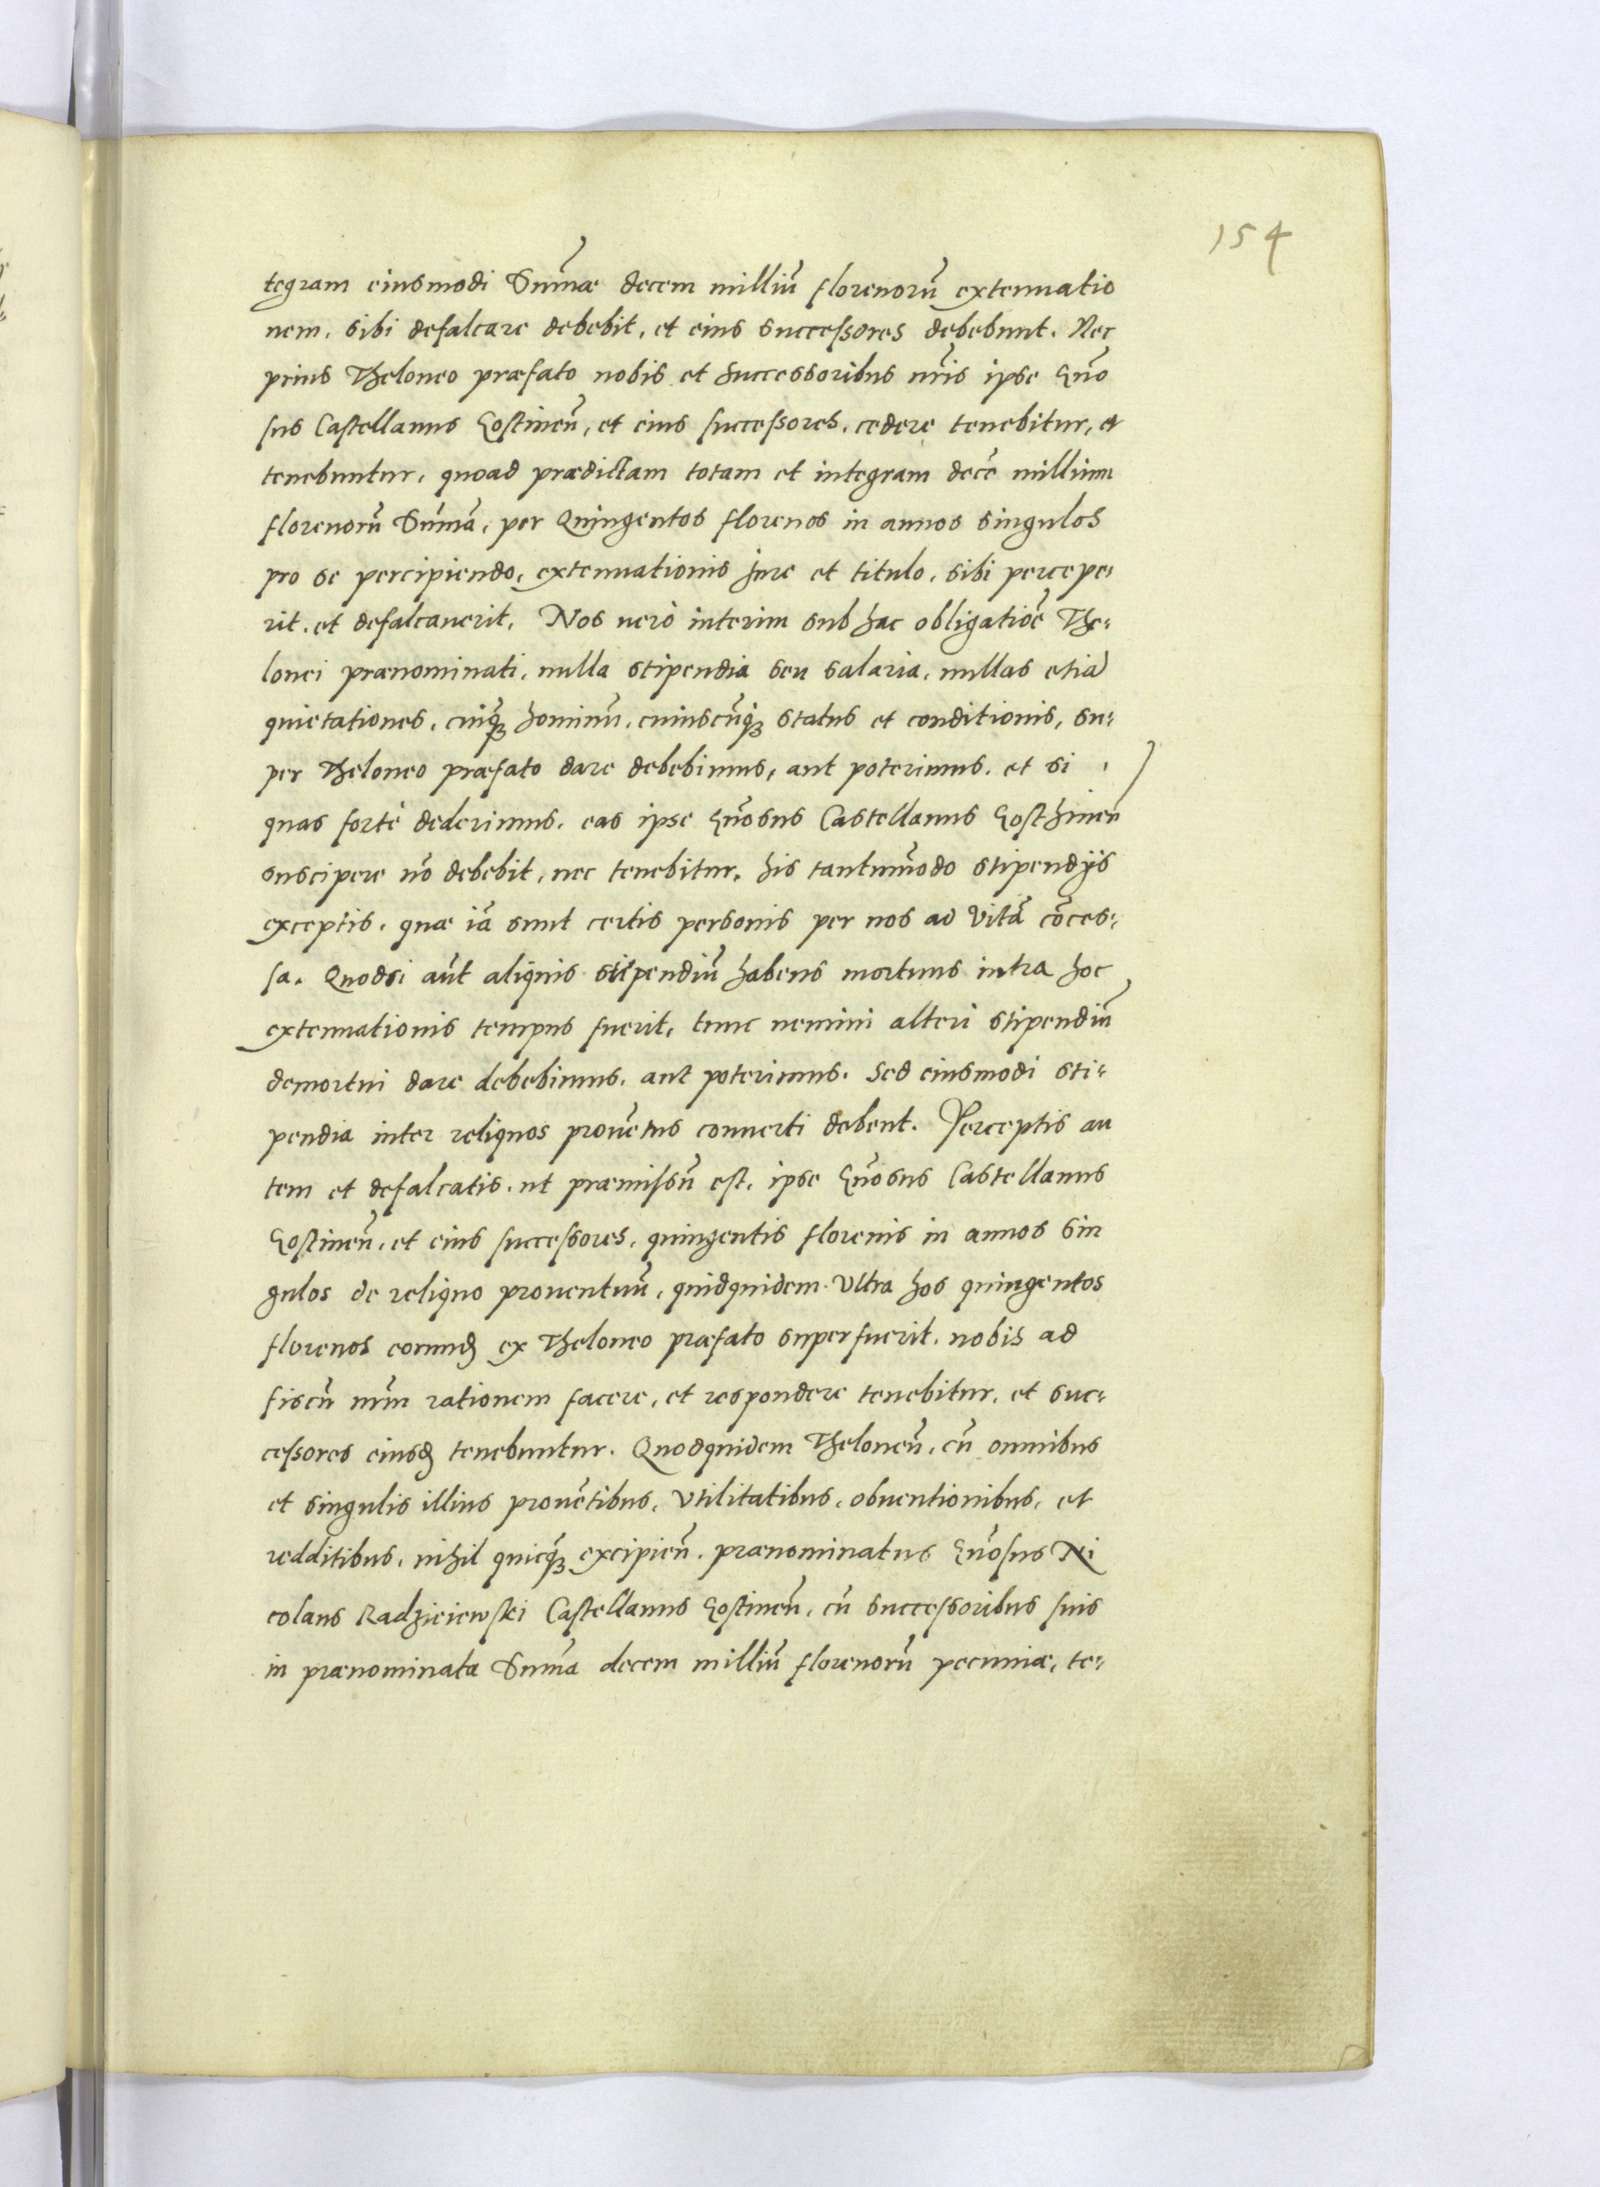 154
tegram eiusmodi Sum̄ae decem milliū florenorū extenuatio
nem, sibi defalcare debebit, et eius successores debebunt. Nec
prius Theloneo præfato nobis et successoribus nr̄is ipse Gn̄o
sus Castellanus Gostinen̄, et eius successores, cedere tenebitur, et
tenebuntur, quoad prædictam totam et integram decē millium
florenorū Sum̄ā, per Quingentos florenos in annos singulos
pro se percipiendo, extenuationis Jure et titulo, sibi percepe-
rit, et defalcauerit. Nos uerò interim sub hac obligatiōe The-
lonei prænominati, nulla stipendia seu salaria, nullas etiā
quietationes, cuiq́ꝫ hominū, cuiuscūq́ꝫ status et conditionis, su-
per Theloneo præfato dare debebimus, aut poterimus, et si
quas fortè dederimus, eas ipse Gn̄osus Castellanus Gosthinen̄
suscipere nō debebit, nec tenebitur, his tantum̄odo stipendijs
exceptis, quæ iā sunt certis personis per nos ad Vitā cōces-
sa. Quodsi aūt aliquis stipendiū habens mortuus intra hoc
extenuationis tempus fuerit, tunc nemini alteri stipendiū
demortui dare debebimus, aut poterimus. Sed eiusmodi sti-
pendia inter reliquos prouētus conuerti debent. Perceptis au
tem et defalcatis, ut præmissū est, ipse Gn̄osus Castellanus
Gostinen̄, et eius successores, quingentis florenis in annos sin
gulos de reliquo prouentuū, quidquidem Vltra hos quingentos
florenos eorund ex Theloneo præfato superfuerit, nobis ad
fiscū nr̄m rationem facere, et respondere tenebitur, et suc-
cessores eiusd tenebuntur. Quodquidem Theloneū, cū omnibus
et singulis illius prouētibus, Vtilitatibus, obuentionibus, et
redditibus, nihil quicq́ꝫ excipien̄, prænominatus Gn̄osus Ni
colaus Radzieiewski Castellanus Gostinen̄, cū successoribus suis
in prænominata Sum̄a decem milliū florenorū pecuniæ, te-